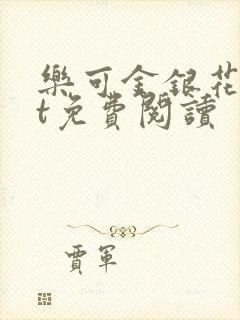 樂可金銀花
t免費閱讀
賈軍